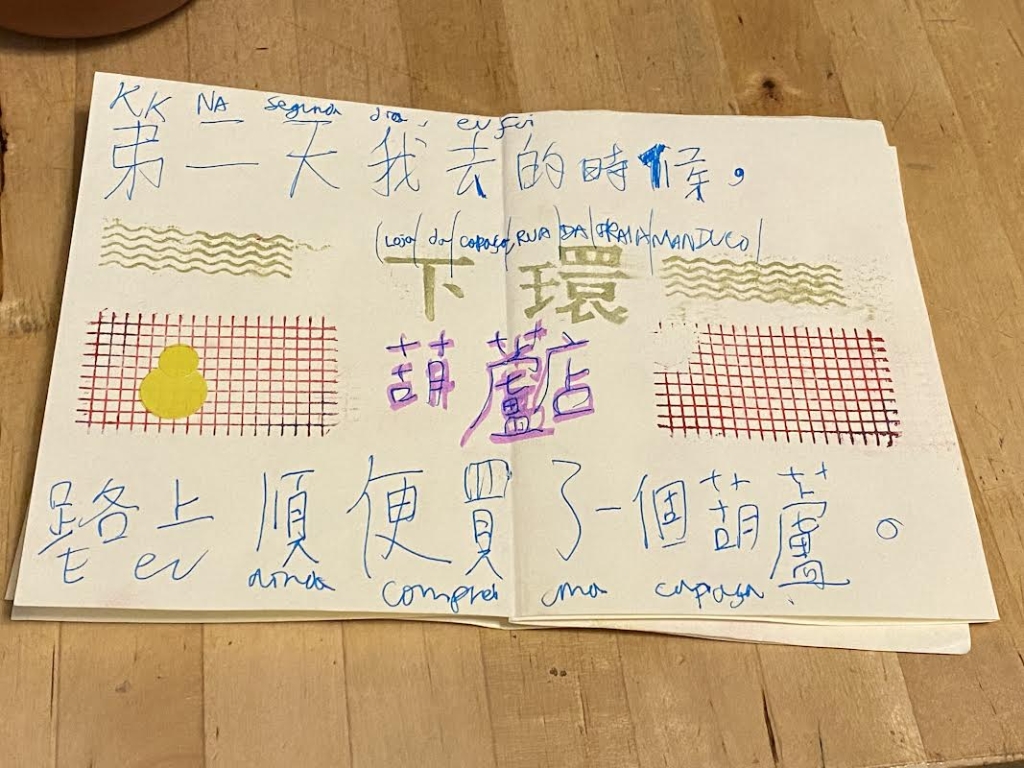 KK NA segunda dia, eu fui
第二天我去的時候,
(Loja/da/cabaça, RUA/DA/PRAIA/MANDUCO/
下環
葫蘆店
路上順便買了一個葫蘆。
E eu ainda comprei uma cabaça.